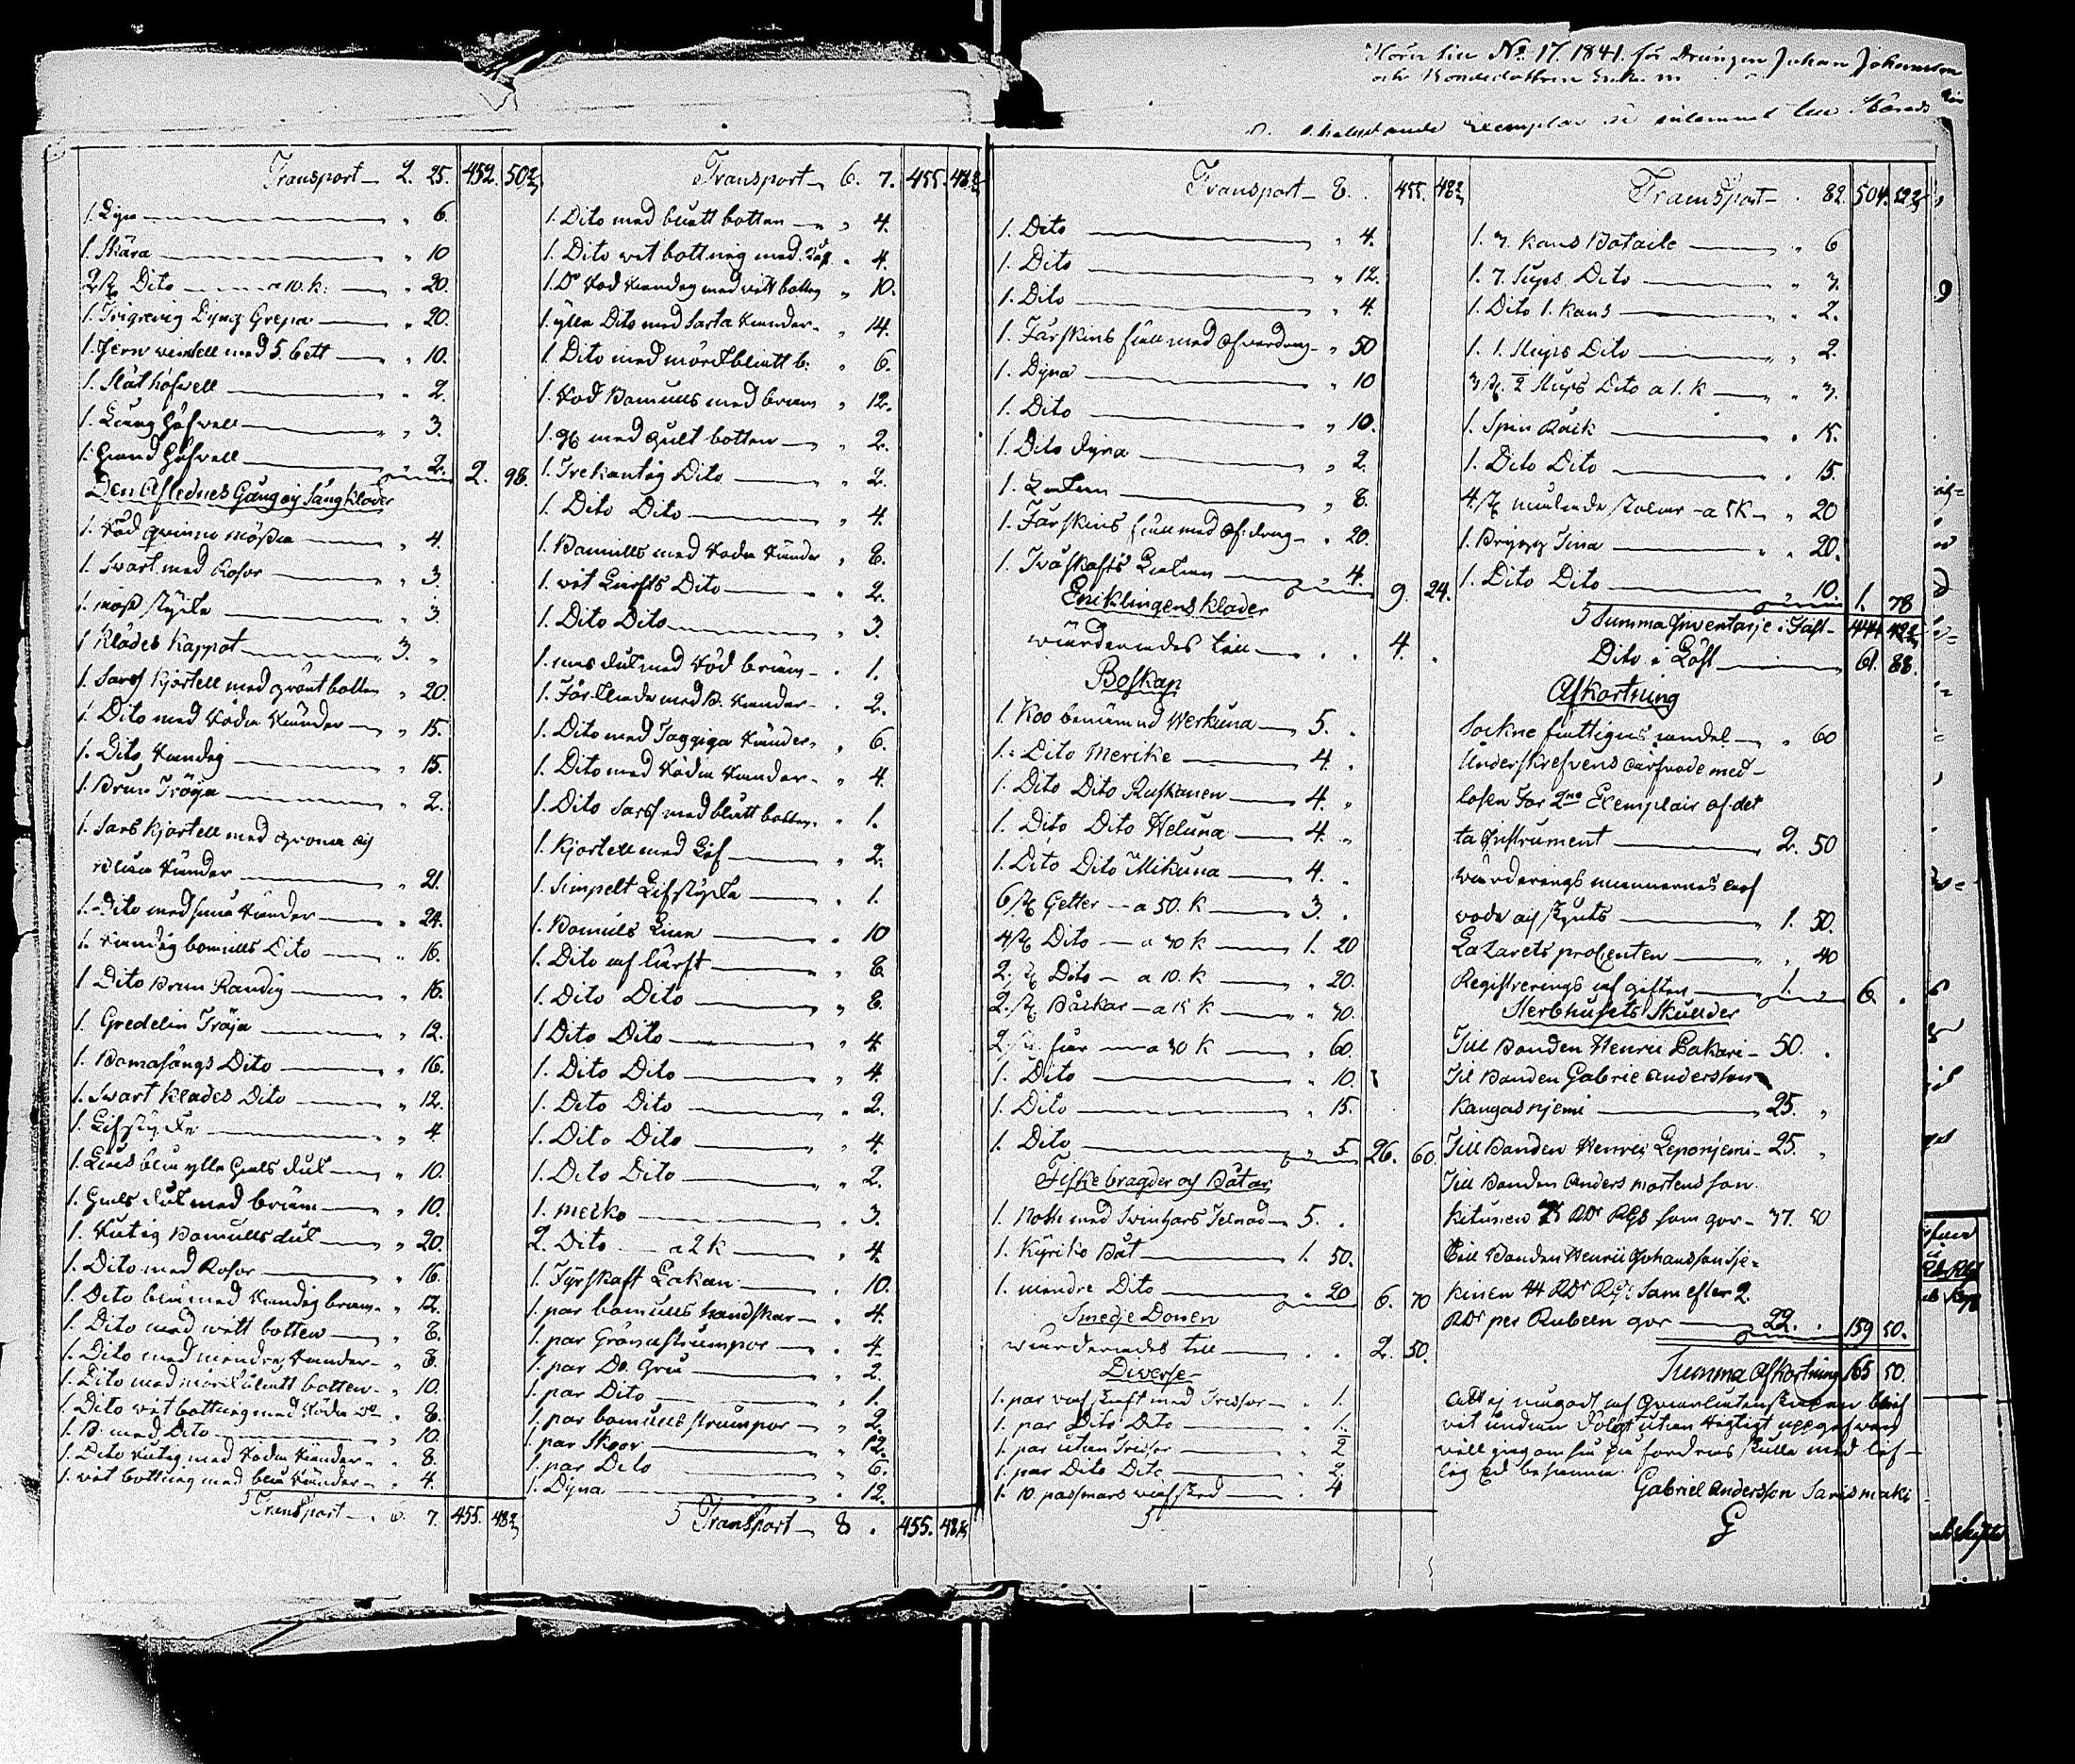 Hörer till No 17. 1841. för Drängen Johan Johansson
och Bondedottren
Exemplar är inlemnat till Härads
Transport 2. 25. 452. 50 2/7
1. Lyra „ 6.
1. Skära „ 10
2 st Dito a 10. k: „ 20.
1. Trigrenig Dyng Grepa „ 20.
1. Jern med 5. bett „ 10.
1. Slät höfvell „ 2.
1. Lång Höfvell „ 3.
1. Grand Höfvell „ 2. 2. 98.
Den Aflednes Gång och Sängkläder
1. Röd qvinno mössa „ 4.
1. Swart med Rosor „ 3.
1. möss stycke „ 3.
1 Klädes Kappot 3. „
1. Sars Kjortell med grönt botten „ 20.
1. Dito med Röda Ränder „ 15.
1. Dito Randig „ 15.
1. Brun Tröja „ 2.
1. Sars Kjortell med gröna och
Ränder „ 21.
1. Dito med små Ränder „ 24.
1. Randig bomulls Dito „ 16.
1 Dito Brun Randig „ 16.
1. Gredelin Tröja „ 12.
1. Bomasängs Dito „ 16.
1. Swart Klädes Dito „ 12.
1. Lifstycke „ 4.
1. Ljusblå ylle Halsduk „ 10.
1. Halsduk med bräm „ 10.
1. Rutig Bomullsduk „ 20.
1. Dito med Rosor „ 16.
1. Dito blå med Randig bräm „ 12.
1. Dito med witt botten „ 8.
1. Dito med mindre Ränder „ 8.
1. Dito med mörkblått botten „ 10.
1. Dito witbottnig med Röda Do „ 8.
1. D: med Dito „ 10.
1. Dito Rutig med Röda Ränder „ 8.
1. wit bottnig med blå Ränder „ 4.
Transport „ 6. 7. 455. 48 2/7
Transport 6. 7. 455. 48 2/7
1. Dito med blått botten „ 4.
1. Dito wit bottnig med „ 4.
1. Do Röd Randig med witt botten „ 10.
1. ylle Dito med Svarta Ränder „ 14.
1. Dito med mörckblått b: „ 6.
1. Röd Bomulls med bräm „ 12.
1. med gult botten „ 2.
1. Trekantig Dito „ 2.
1. Dito Dito „ 4.
1. Bomulls med Röda Ränder „ 8.
1. wit Lärfts Dito „ 2.
1. Dito Dito „ 3.
1. näsduk med Röd bräm „ 1.
1. Förkläde med B. Ränder „ 2.
1. Dito med Taggiga Ränder „ 6.
1. Dito med Röda Ränder „ 4.
1. Dito Sars med blått botten „ 1.
1. Kjortell med Lif „ 2.
1. Simpelt Lifstycke „ 1.
1. Bomuls Linn „ 10
1. Dito af lärft „ 8.
1. Dito Dito „ 8.
1 Dito Dito „ 4
1. Dito Dito „ 4.
1. Dito Dito „ 2.
1. Dito Dito „ 4.
1. Dito Dito „ 2.
1. mecko „ 3.
2. Dito a 2 k „ 4
1. Fyrskaft Lakan „ 10.
1. par bomulls handskar „ 4.
1. par Gröna strumpor „ 4
1. par Do. Grå „ 2.
1. par Dito „ 1.
1. par bomulls strumpor „ 2.
1. par Skoor „ 12.
1. par Dito „ 6.
1. Dyna „ 12.
Transport 8 . 455. 48 2/7
Transport 8. . 455. 48 2/7
1. Dito „ 4.
1. Dito „ 12.
1. Dito „ 4.
1. Fårskins fäll med Öfverdrag „ 50
1. Dyna „ 10
1. Dito „ 10.
1. Dito dyna „ 2.
1. Lakan „ 8.
1. Fårskins fäll med Öf: drag „ 20.
1. Tvåskafts Lakan „ 4. 9. 24.
Enklingens kläder
würderades till . . 4. .
Boskap
1. Koo benämnd Werkuna 5. .
1. Dito Merike 4. „
1. Dito Dito Ruskanen 4. „
1. Dito Dito Heluna 4. „
1. Dito Dito Mikuna 4. „
6 st Getter a 50. k 3. .
4 st Dito a 30 k 1. 20
2. st Dito a 10. k „ 20.
2. st Båckar a 15 k „ 30.
2. st får a 30 k „ 60
1. Dito „ 10.
1. Dito „ 15.
1. Dito „ 5 26. 60.
Fiskebragder och Båtar
1. Noth med Swinhars Telnad 5. .
1. Kyrko Båt 1. 50.
1. mindre Dito „ 20 6. 70
Smedje Donen
würderades till . . 2. 50.
Diverse
1. par waf skaft med Trissor „ 1.
1. par Dito Dito „ 1.
1. par utan Trissor „ 2
1. par Dito Dito „ 2.
1. 10. pasmars wäfsked „ 4
Transport . 82. 504. 52 2/7
1. 3. kans Botaile „ 6
1. 7. Sups Dito „ 3.
1. Dito 1. kans „ 2.
1. 1. Stups Dito „ 2.
3 st. 1/2 Stups Dito a 1. k „ 3.
1. Spin Råck „ 15.
1. Dito Dito „ 15.
4. st målade stolar a 5 k „ 20
1. Brygg Tina „ 20.
1. Dito Dito „ 10. 1. 78
Summa Inventarje i Fast 444. 42 2/7
Dito i Löst 61. 88.
Afkortning
Sockne fattigas andel „ 60
Underskrefvens arfvode med
losen For 2ne Exemplair af det
ta Instrument 2. 50
würderings männernes arf
vode och skjuts 1. 50.
Lazarets procenten „ 40
Registrerings af giften 1. „ 6. .
Sterbhusets Skulder
Till Bonden Henric Lakari 50. .
Til Bonden Gabriel Andersson
Kangasnjemi 25. „
Till Bonden Henric Leponjemi 25. „
Till Bonden Anders Mortensson
Kitunen 75 RDr RGs som gör 37. 50
Till Bonden Henric Johansson
kinen 44 RDr RGs Som efter 2
RDr per Rubeln gör 22. . 159 50.
Summa Afkortning 165 50.
Att ej någodt af Qvarlåtenskapen blif
vit undan Dolgt utan Rigtigt uppgifwen
will jag om så på fordras skulle med lif
lig Ed besanna.
Gabriel Andersson Sarismäki
G